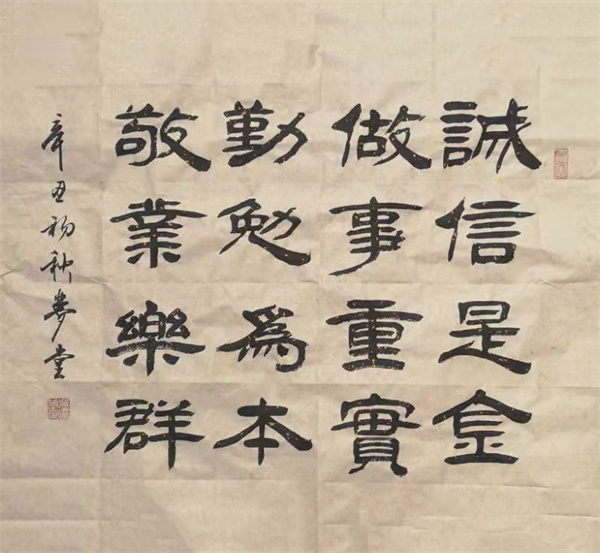 誠信是金
做事重實
勤勉為本
敬業樂群
辛丑初秋夢堂